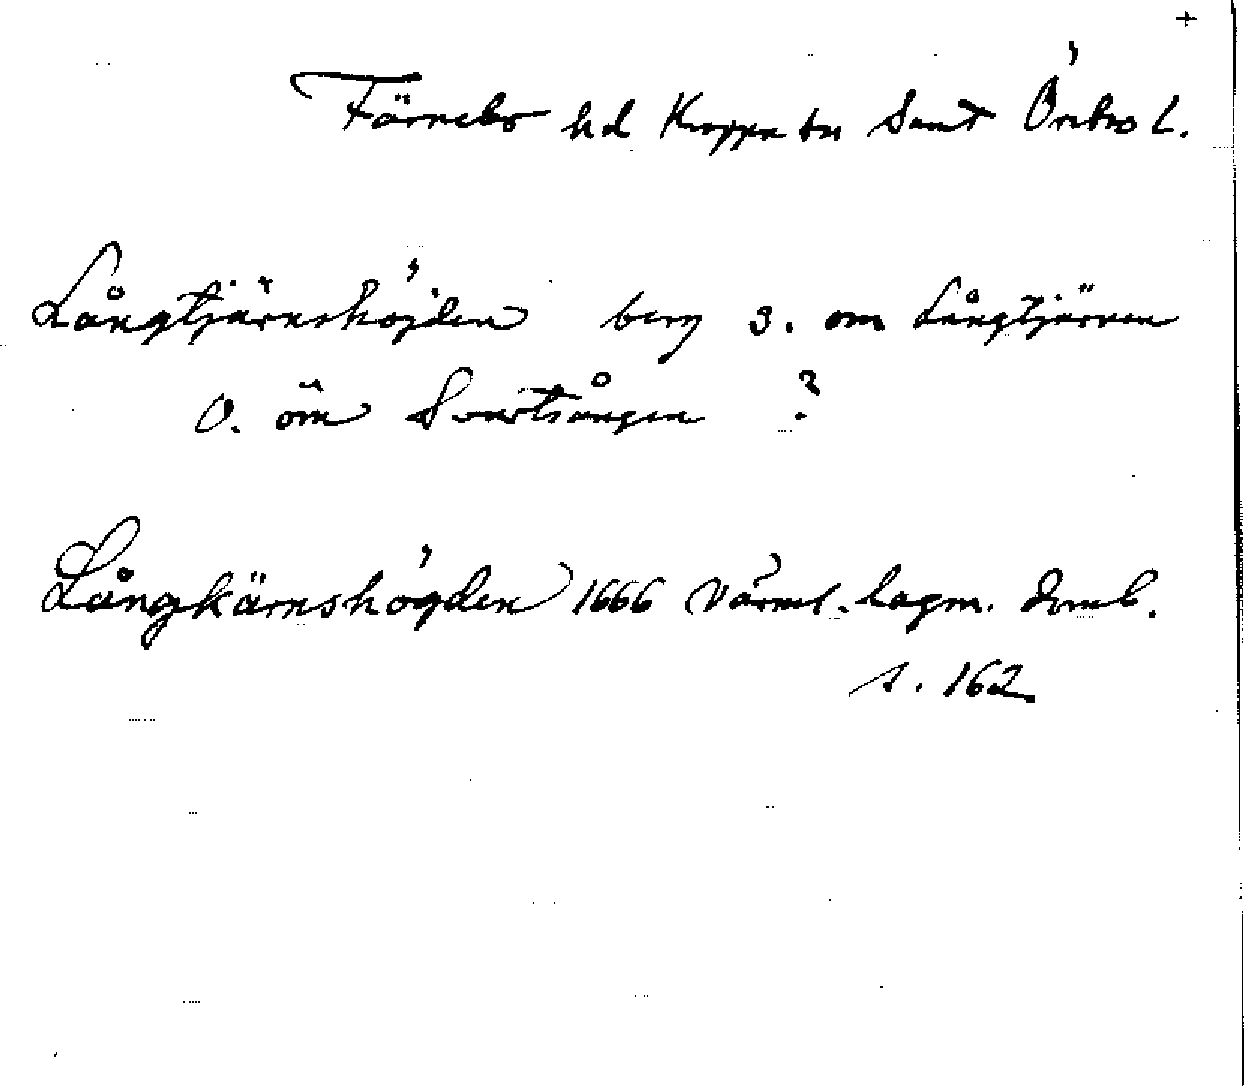 +
Färnebo hd Kroppa sn samt Örebro L.
Långtjärnshöjden berg S. om Långtjärnen
O. om Svartsången ?
Långkärnshögden 1666 Värml. lagm. domb.
s. 162